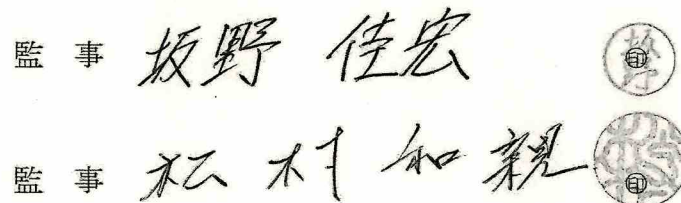 監事 坂野 佳宏 印
監事 松村 和親 印